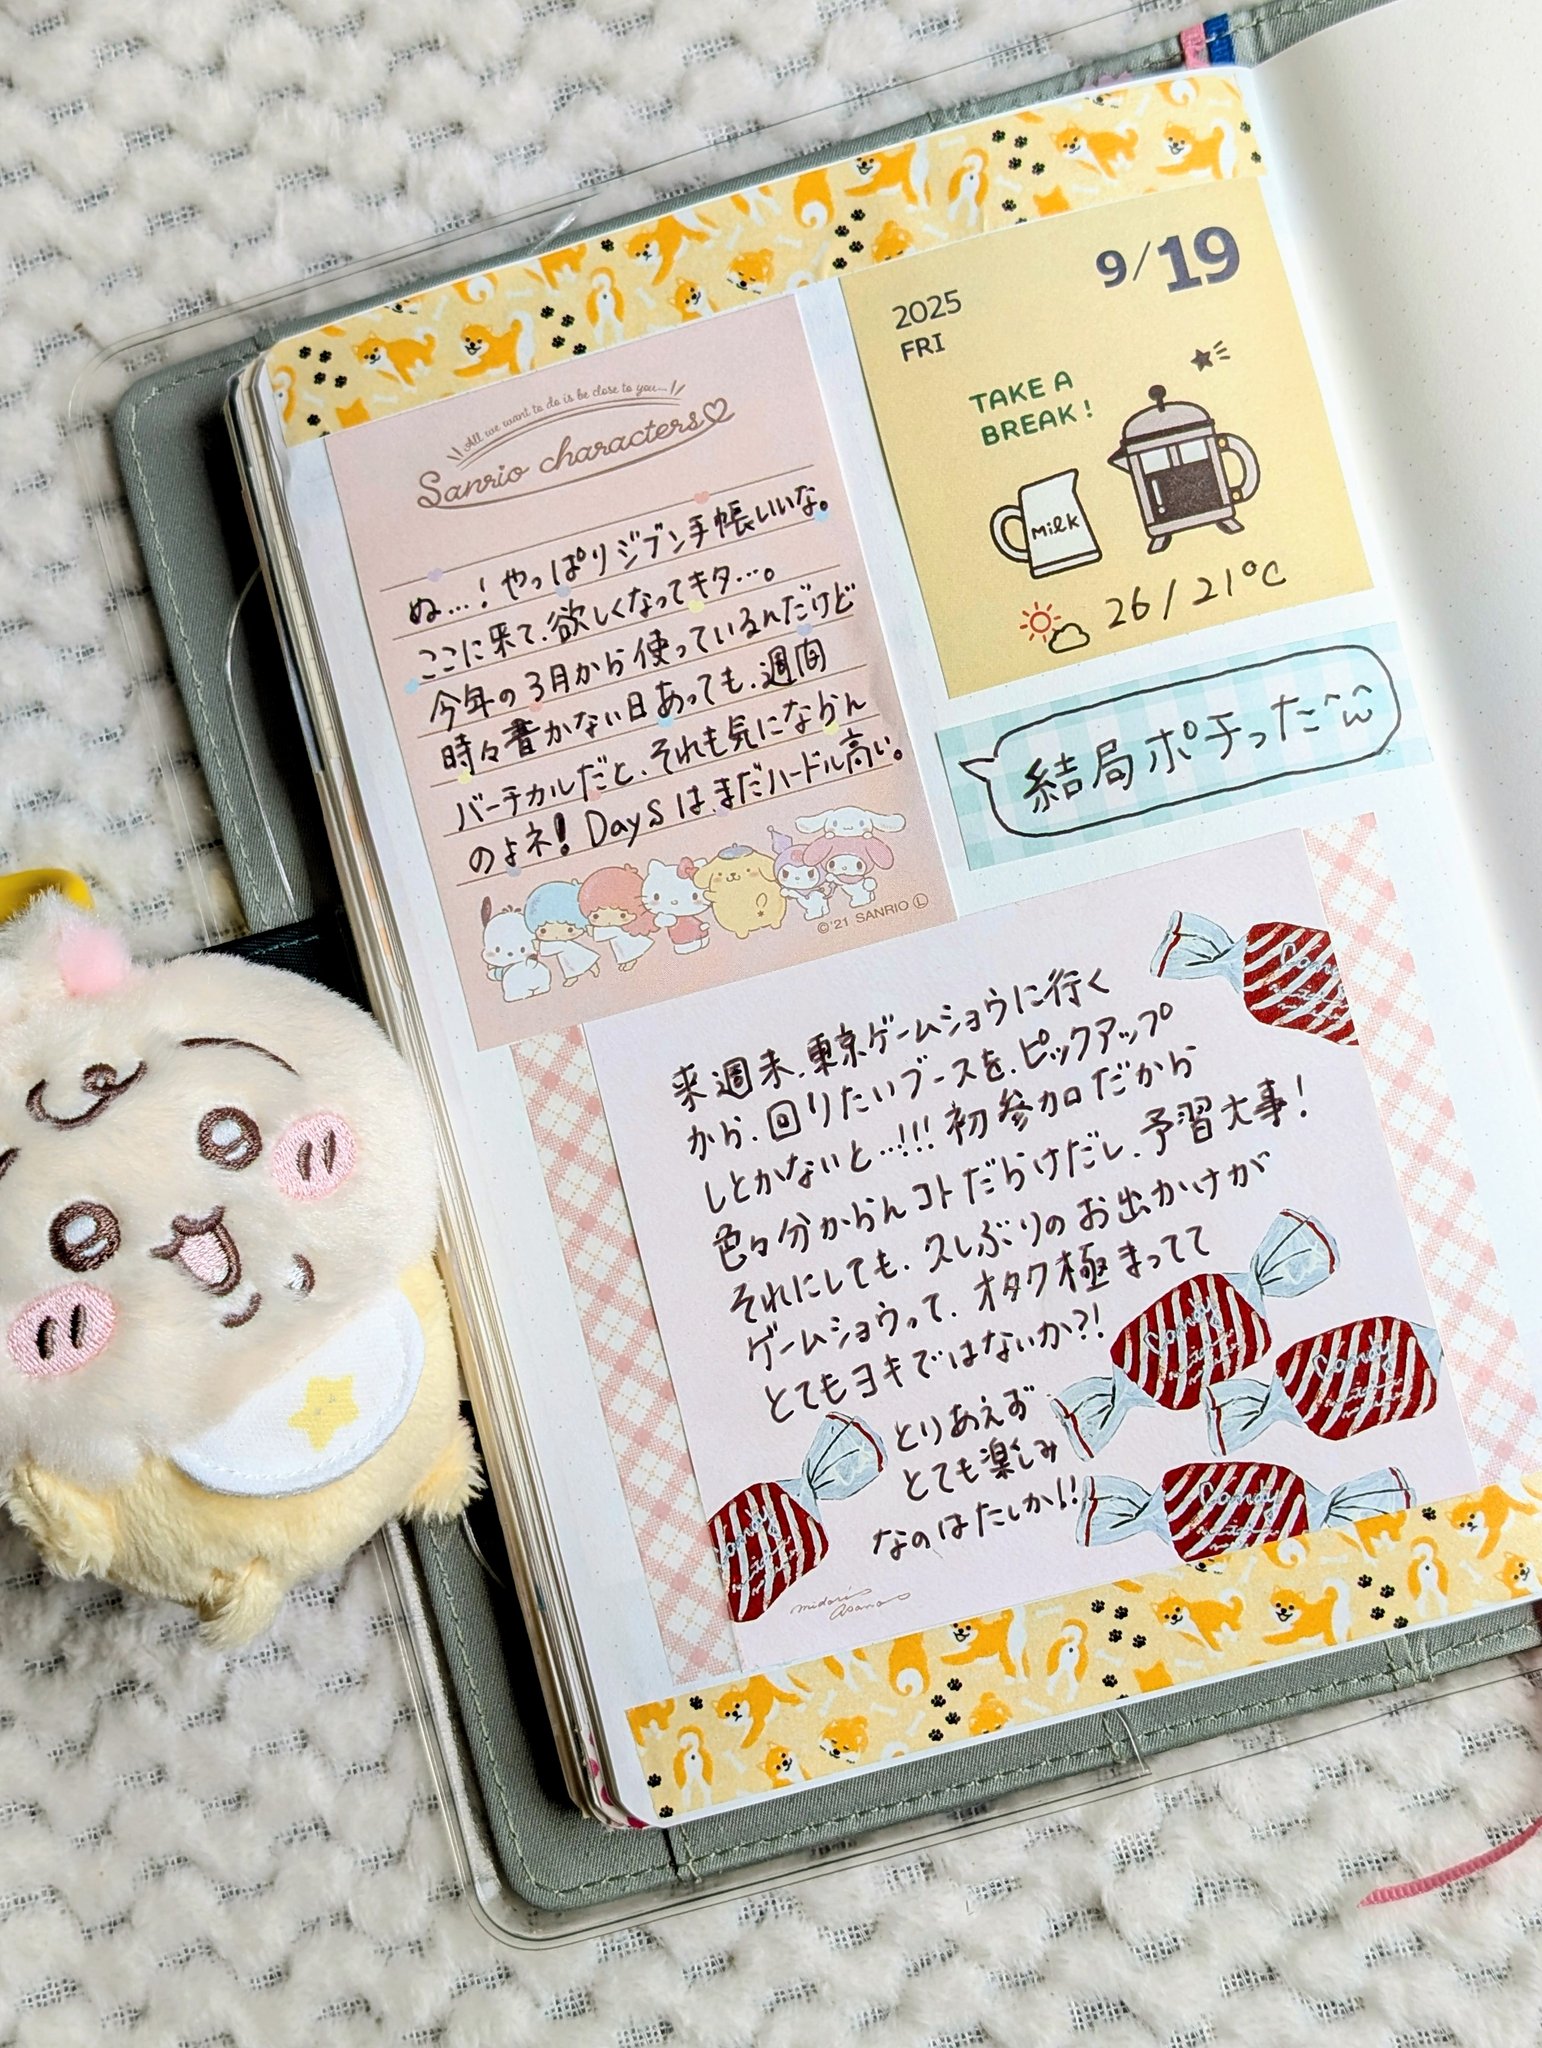 9/19
2025
FRI
TAKE A
BREAK!
MILK
26/21℃
All we want to do is be close to you...
Sanrio characters
ぬ…!やっぱりジブン手帳いいな。
ここに来て、欲しくなってキタ…。
今年の3月から使っているんだけど
時々書かない日あっても、週間
バーチカルだと、それも気にならん
のよネ! Daysはまだハードル高い。
©'21 SANRIO Ⓛ
結局ポチった^ω^
来週末、東京ゲームショウに行く
から、回りたいブースを、ピックアップ
しとかないと…!!! 初参加だから
色々分からんコトだらけだし、予習大事!
それにしても、久しぶりのお出かけが
ゲームショウって、オタク極まってて
とてもヨキではないか?!
とりあえず
とても楽しみ
なのはたしか!!
Candy
Candy
Candy
Candy
Candy
midori asano